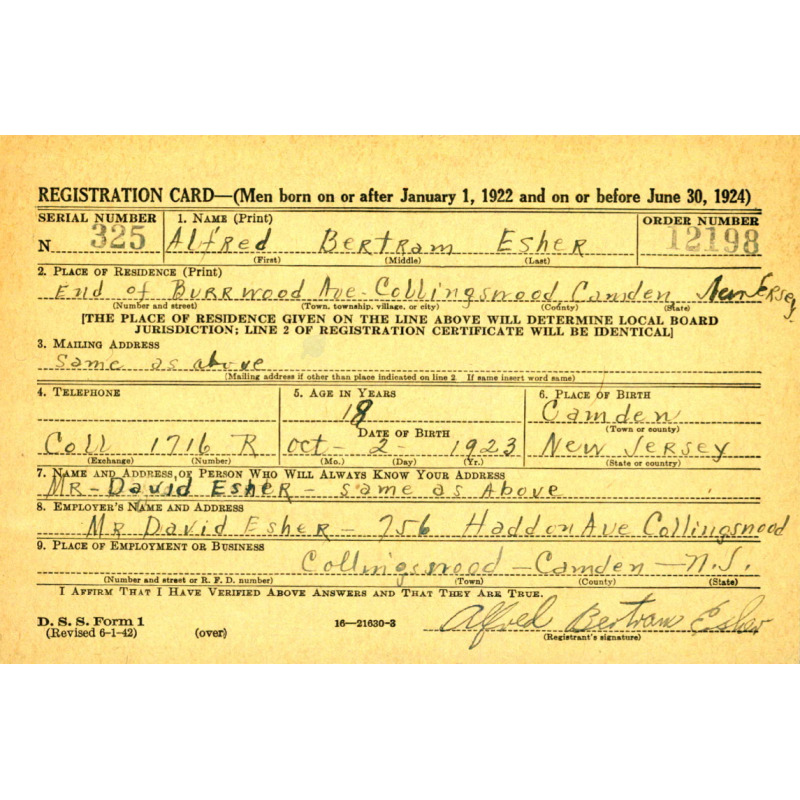 REGISTRATION CARD—(Men born on or after January 1, 1922 and on or before June 30, 1924)
SERIAL NUMBER 1. NAME (Print) ORDER NUMBER
N 325 Alfred Bertram Esher 12198
(First) (Middle) (Last)
2. PLACE OF RESIDENCE (Print)
End of Burrwood Ave - Collingswood Camden New Jersey
(Number and street) (Town, township, village, or city) (County) (State)
[THE PLACE OF RESIDENCE GIVEN ON THE LINE ABOVE WILL DETERMINE LOCAL BOARD
JURISDICTION; LINE 2 OF REGISTRATION CERTIFICATE WILL BE IDENTICAL]
3. MAILING ADDRESS
Same as above
(Mailing address if other than place indicated on line 2. If same insert word same)
4. TELEPHONE 5. AGE IN YEARS 6. PLACE OF BIRTH
18 Camden
DATE OF BIRTH (Town or county)
Coll 1716 R Oct - 2 - 1923 New Jersey
(Exchange) (Number) (Mo.) (Day) (Yr.) (State or country)
7. NAME AND ADDRESS OF PERSON WHO WILL ALWAYS KNOW YOUR ADDRESS
MR - David Esher - same as above
8. EMPLOYER'S NAME AND ADDRESS
MR David Esher - 756 Haddon Ave Collingswood
9. PLACE OF EMPLOYMENT OR BUSINESS
Collingswood - Camden - N.J.
(Number and street or R. F. D. number) (Town) (County) (State)
I AFFIRM THAT I HAVE VERIFIED ABOVE ANSWERS AND THAT THEY ARE TRUE.
D. S. S. Form 1
(Revised 6-1-42) (over) 16—21630-3 Alfred Bertram Esher
(Registrant's signature)